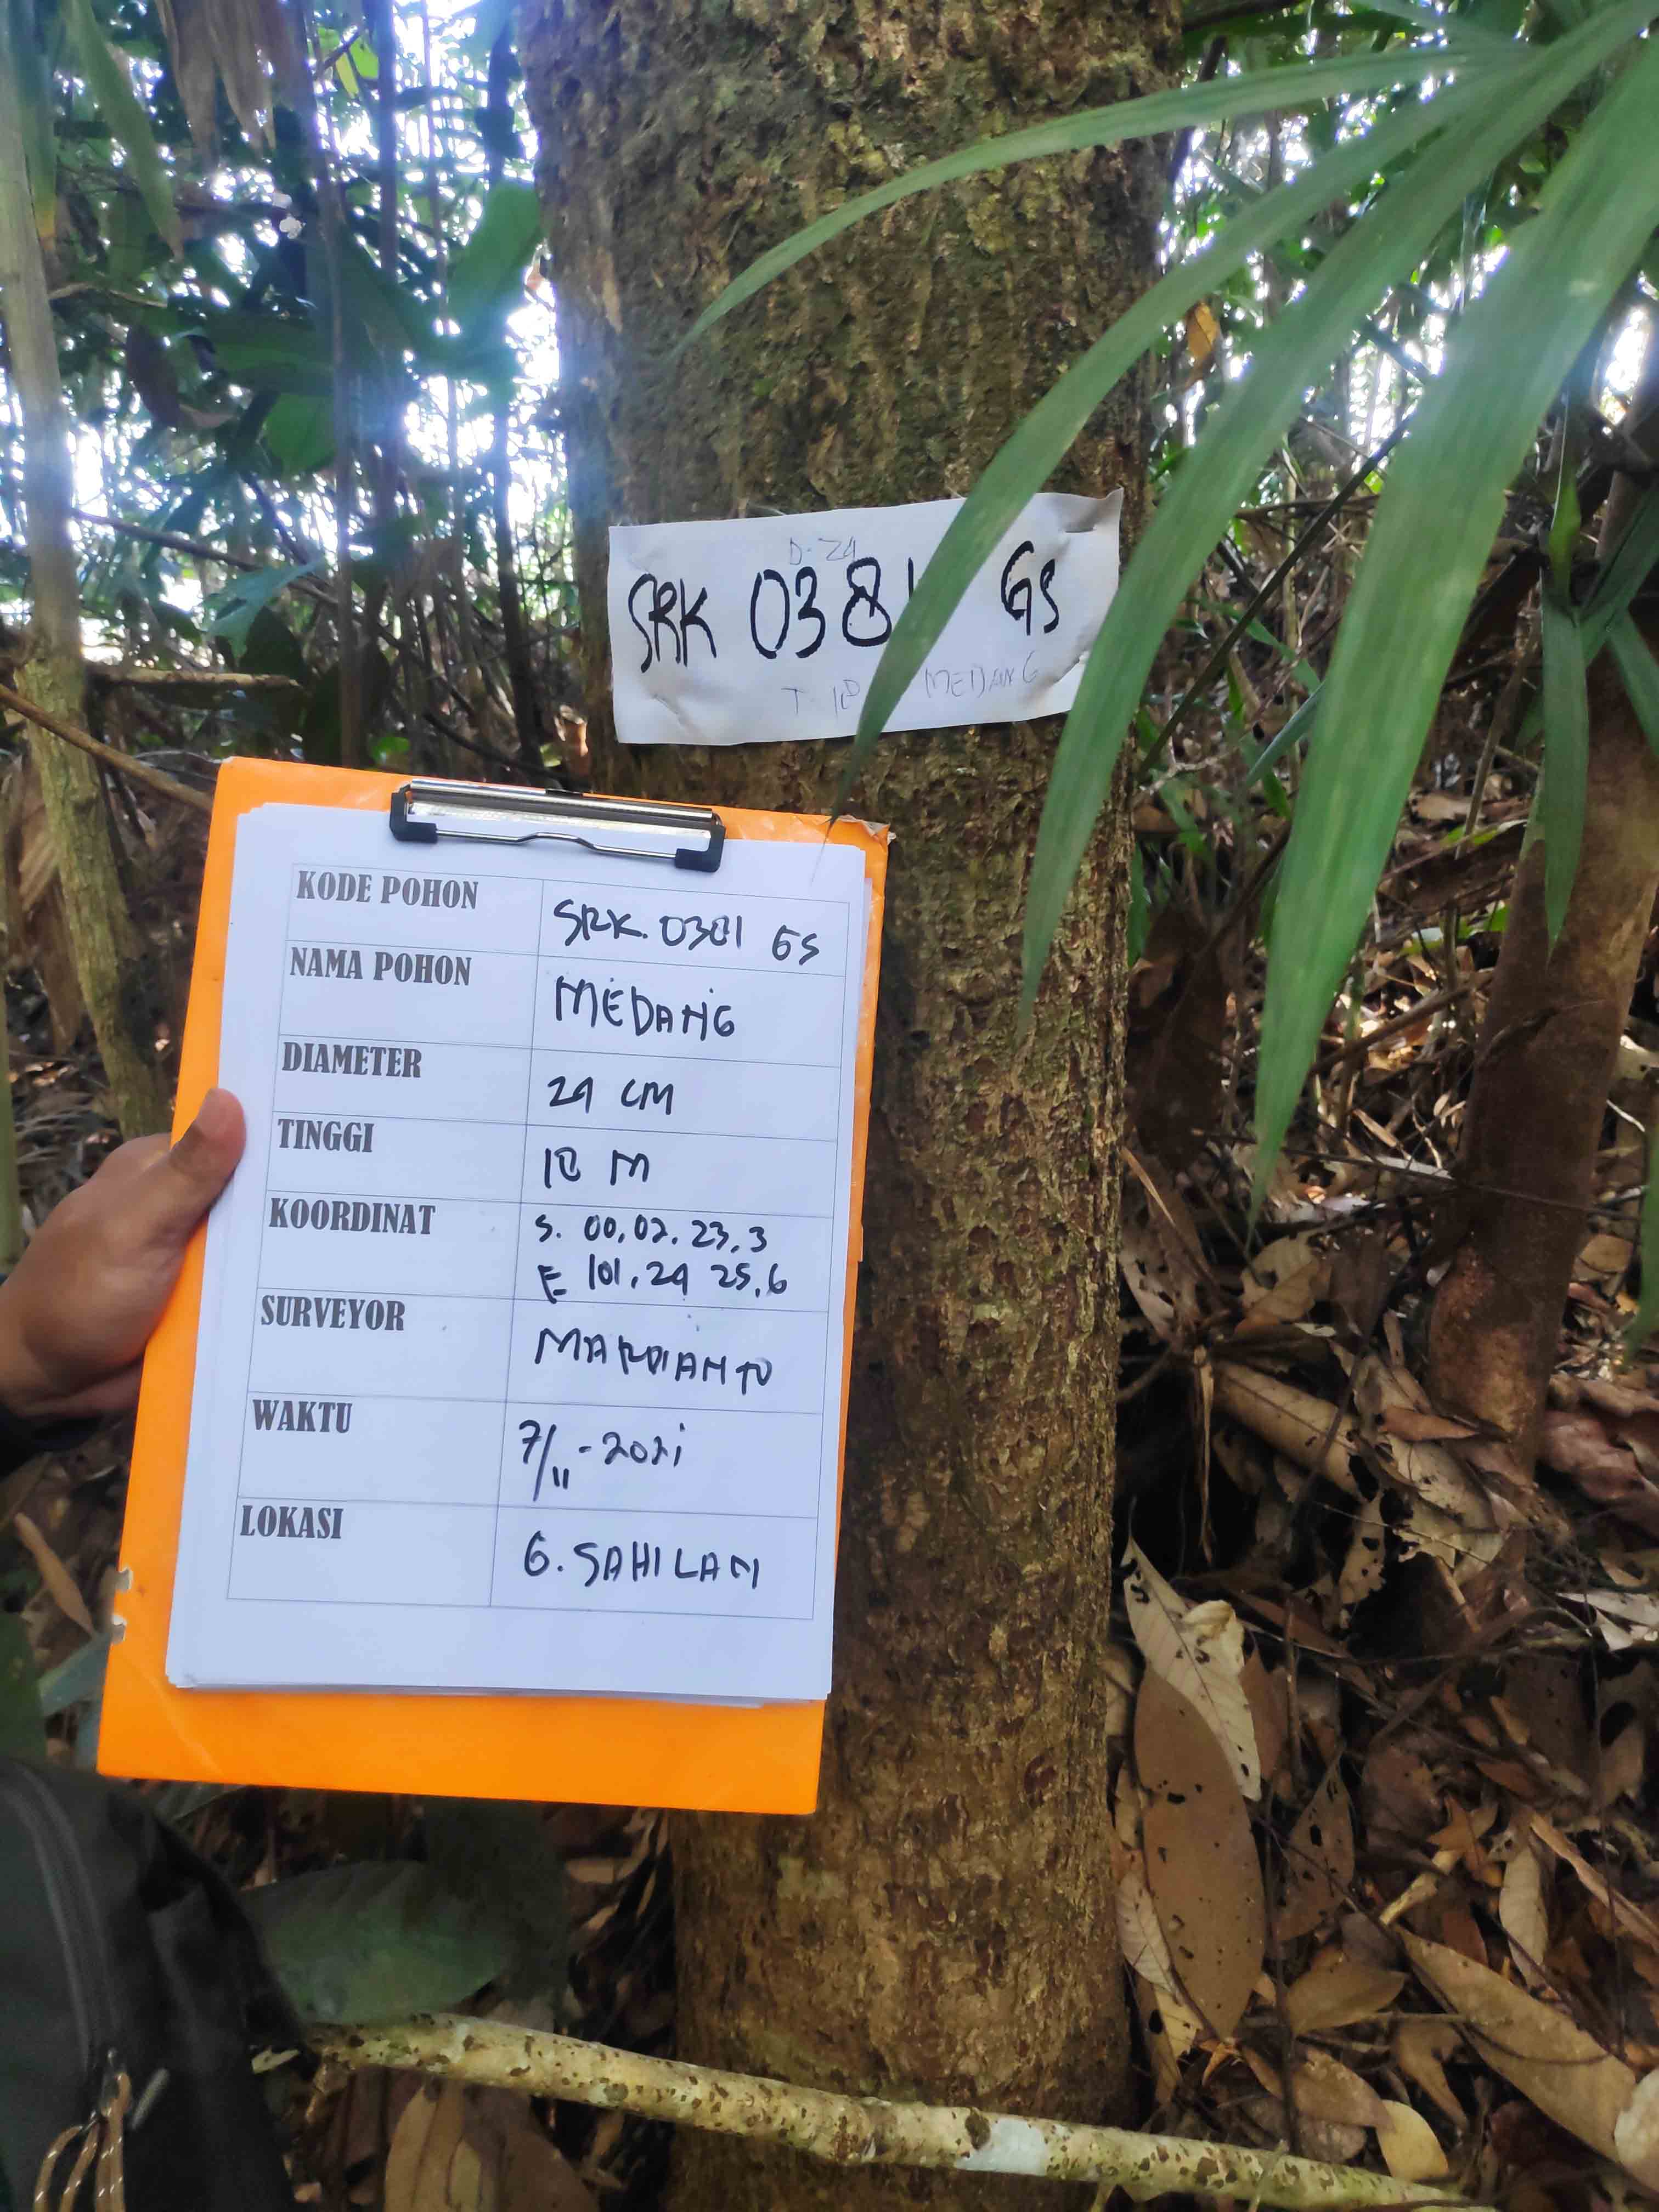 D. 24
SRK 0381 GS
T. 18 MEDANG
KODE POHON SRK. 0381 GS
NAMA POHON MEDANG
DIAMETER 24 CM
TINGGI 18 M
KOORDINAT S. 00.02.23.3
E 101.24 25.6
SURVEYOR MARDIANTO
WAKTU 7/11-2021
LOKASI G. SAHILAN